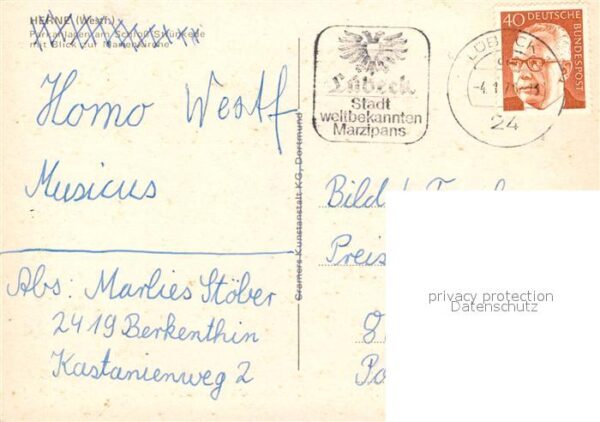 HERNE (Westf.)
Parkanlagen am Schloß Strünkede
mit Blick zur Marienkirche
Homo Westf
Musicus
Abs: Marlies Stöber
2419 Berkenthin
Kastanienweg 2
Cramers Kunstanstalt KG, Dortmund
Lübeck
Stadt
weltbekannten
Marzipans
LÜBECK
-4.1.7
24
40 DEUTSCHE BUNDESPOST
Bild
Preis
privacy protection
Datenschutz